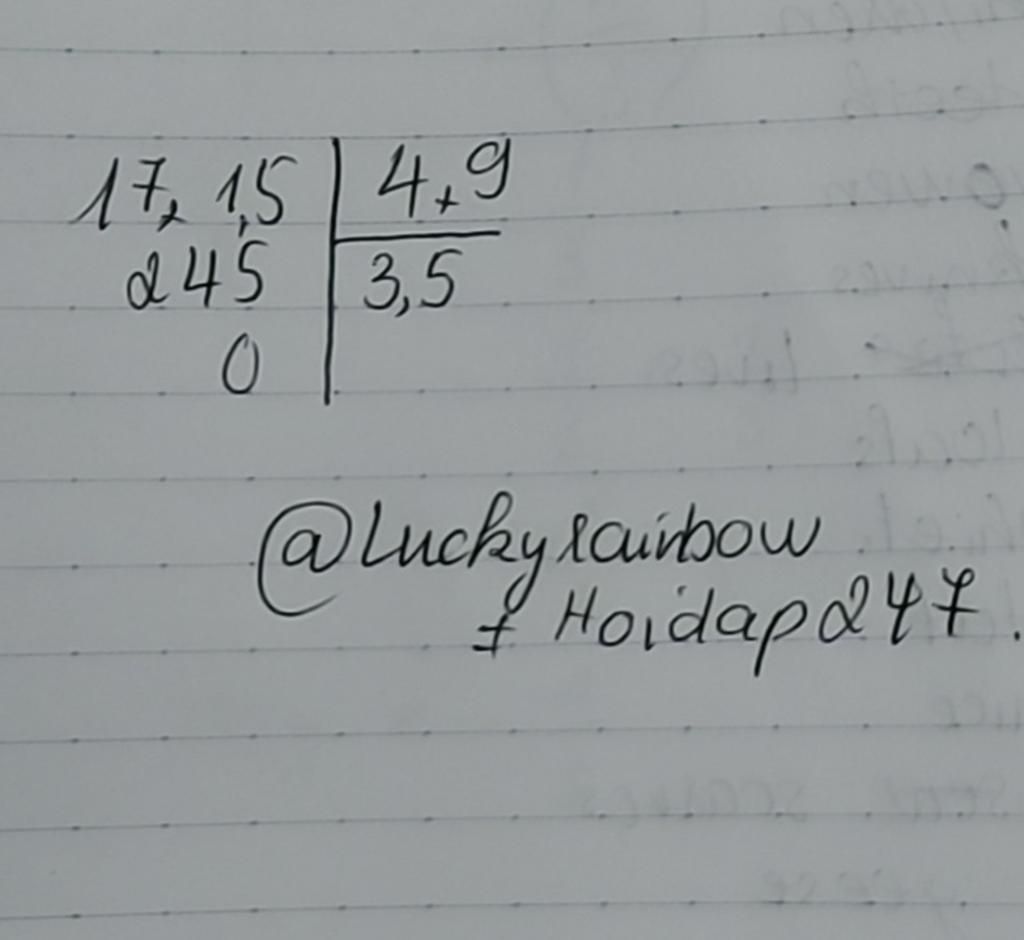 17, 1,5 4,9
245 3,5
0
@Luckyrainbow
# Hoidap247.